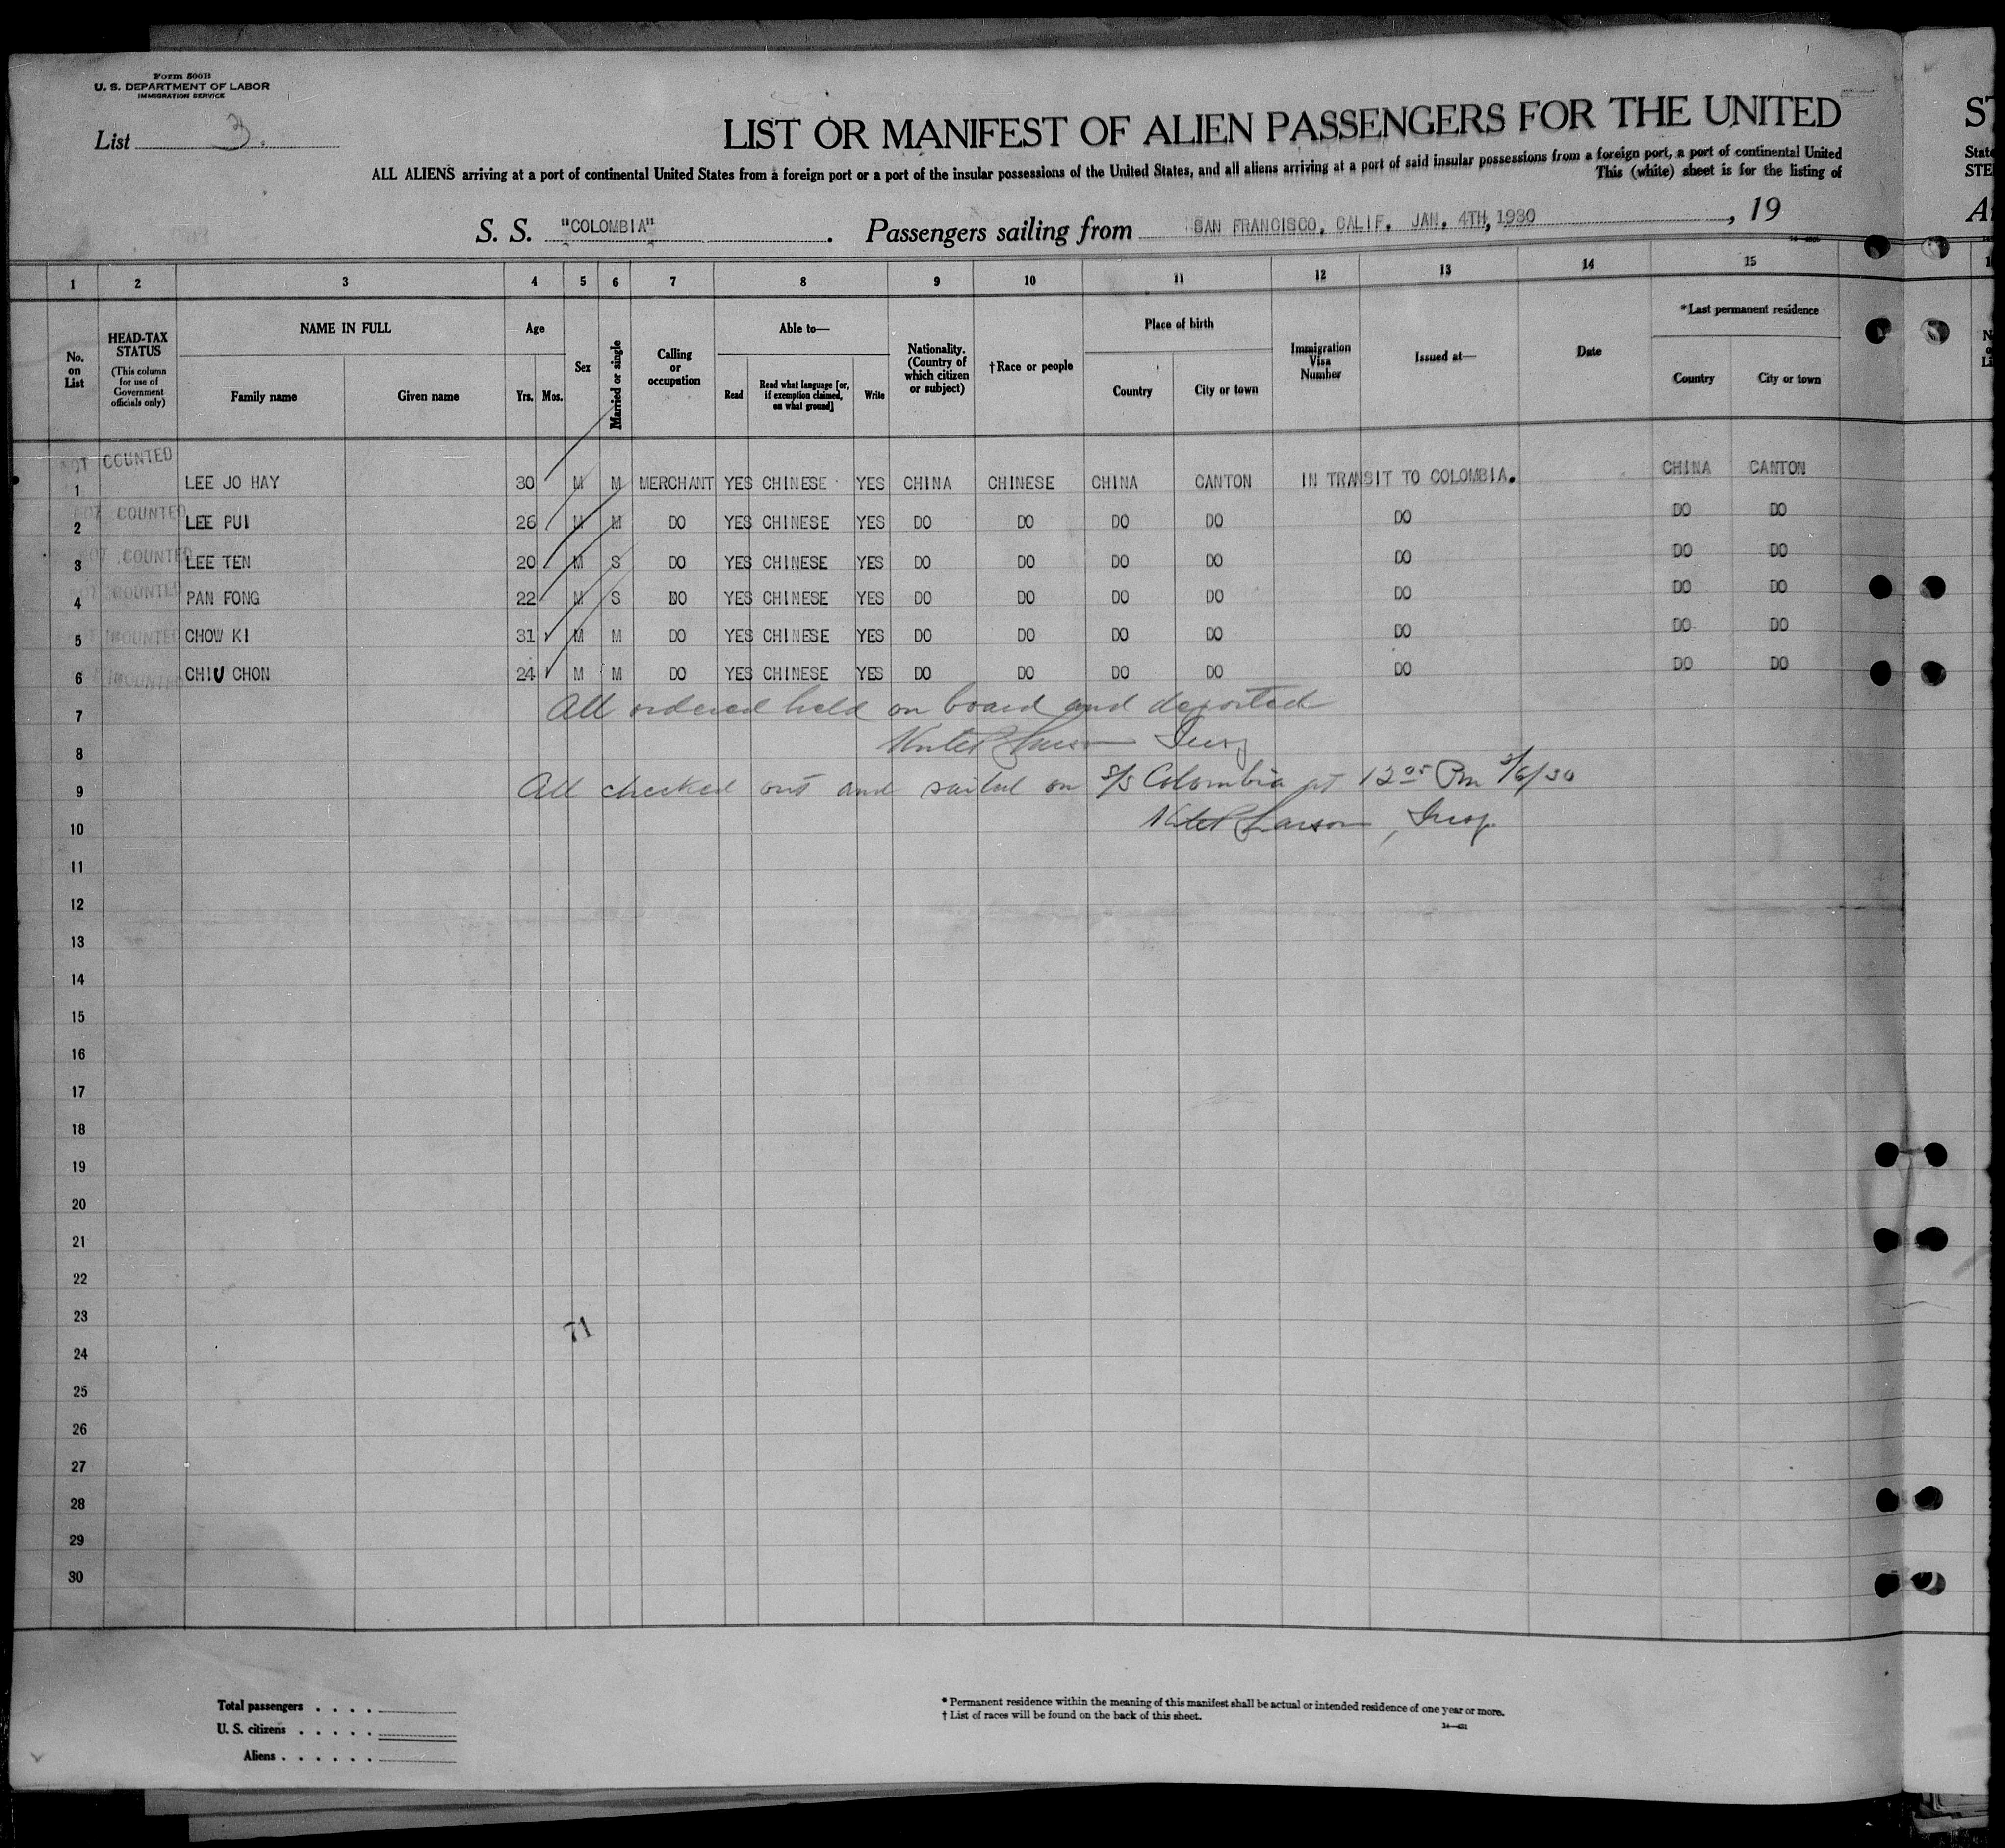 Form 500B
U. S. DEPARTMENT OF LABOR
IMMIGRATION SERVICE
List 3.
LIST OR MANIFEST OF ALIEN PASSENGERS FOR THE UNITED
ALL ALIENS arriving at a port of continental United States from a foreign port or a port of the insular possessions of the United States, and all aliens arriving at a port of said insular possessions from a foreign port, a port of continental United
This (white) sheet is for the listing of
S. S. "COLOMBIA" . Passengers sailing from SAN FRANCISCO, CALIF. JAN. 4TH, 1930 , 19
ST
State
STE
1 2 3 4 5 6 7 8 9 10 11 12 13 14 15
No. on List
HEAD-TAX STATUS (This column for use of Government officials only)
NAME IN FULL Family name Given name
Age Yrs. Mos.
Sex
Married or single
Calling or occupation
Able to— Read Read what language [or, if exemption claimed, on what ground] Write
Nationality. (Country of which citizen or subject)
†Race or people
Place of birth Country City or town
Immigration Visa Number
Issued at—
Date
*Last permanent residence Country City or town
1 NOT COUNTED LEE JO HAY 30 M M MERCHANT YES CHINESE YES CHINA CHINESE CHINA CANTON IN TRANSIT TO COLOMBIA. CHINA CANTON
2 NOT COUNTED LEE PUI 26 M M DO YES CHINESE YES DO DO DO DO DO DO DO
3 NOT COUNTED LEE TEN 20 M S DO YES CHINESE YES DO DO DO DO DO DO DO
4 NOT COUNTED PAN FONG 22 M S DO YES CHINESE YES DO DO DO DO DO DO DO
5 COUNTED CHOW KI 31 M M DO YES CHINESE YES DO DO DO DO DO DO DO
6 COUNTED CHIU CHON 24 M M DO YES CHINESE YES DO DO DO DO DO DO DO
7 All ordered held on board and deported
8 Larson Insp
9 All checked out and sailed on S/S Colombia at 12 05 Pm /6/30
10 Larson, Insp.
11
12
13
14
15
16
17
18
19
20
21
22
23
71
24
25
26
27
28
29
30
Total passengers . . . .
U. S. citizens . . . . .
Aliens . . . . . .
* Permanent residence within the meaning of this manifest shall be actual or intended residence of one year or more.
† List of races will be found on the back of this sheet.